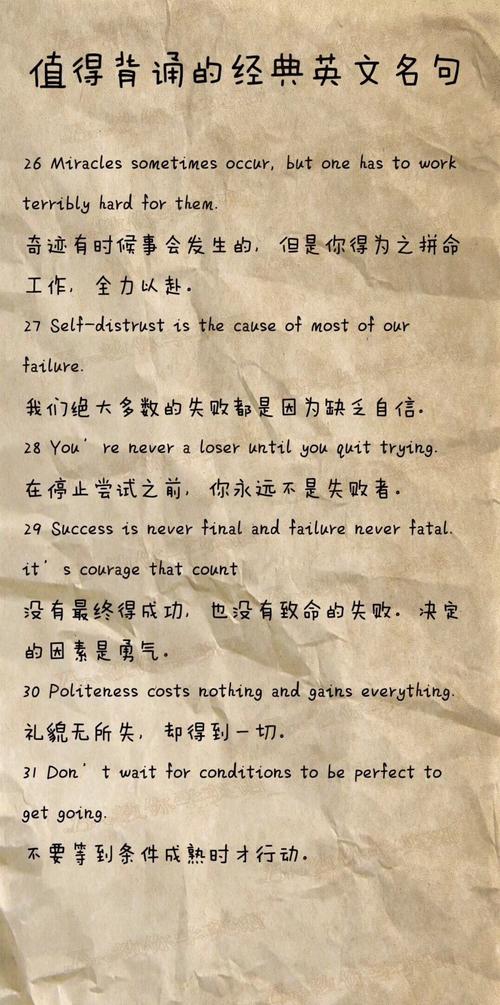 值得背诵的经典英文名句
26 Miracles sometimes occur, but one has to work
terribly hard for them.
奇迹有时候事会发生的, 但是你得为之拼命
工作, 全力以赴。
27 Self-distrust is the cause of most of our
failure.
我们绝大多数的失败都是因为缺乏自信。
28 You're never a loser until you quit trying.
在停止尝试之前, 你永远不是失败者。
29 Success is never final and failure never fatal.
it's courage that count
没有最终得成功, 也没有致命的失败。决定
的因素是勇气。
30 Politeness costs nothing and gains everything.
礼貌无所失, 却得到一切。
31 Don't wait for conditions to be perfect to
get going.
不要等到条件成熟时才行动。